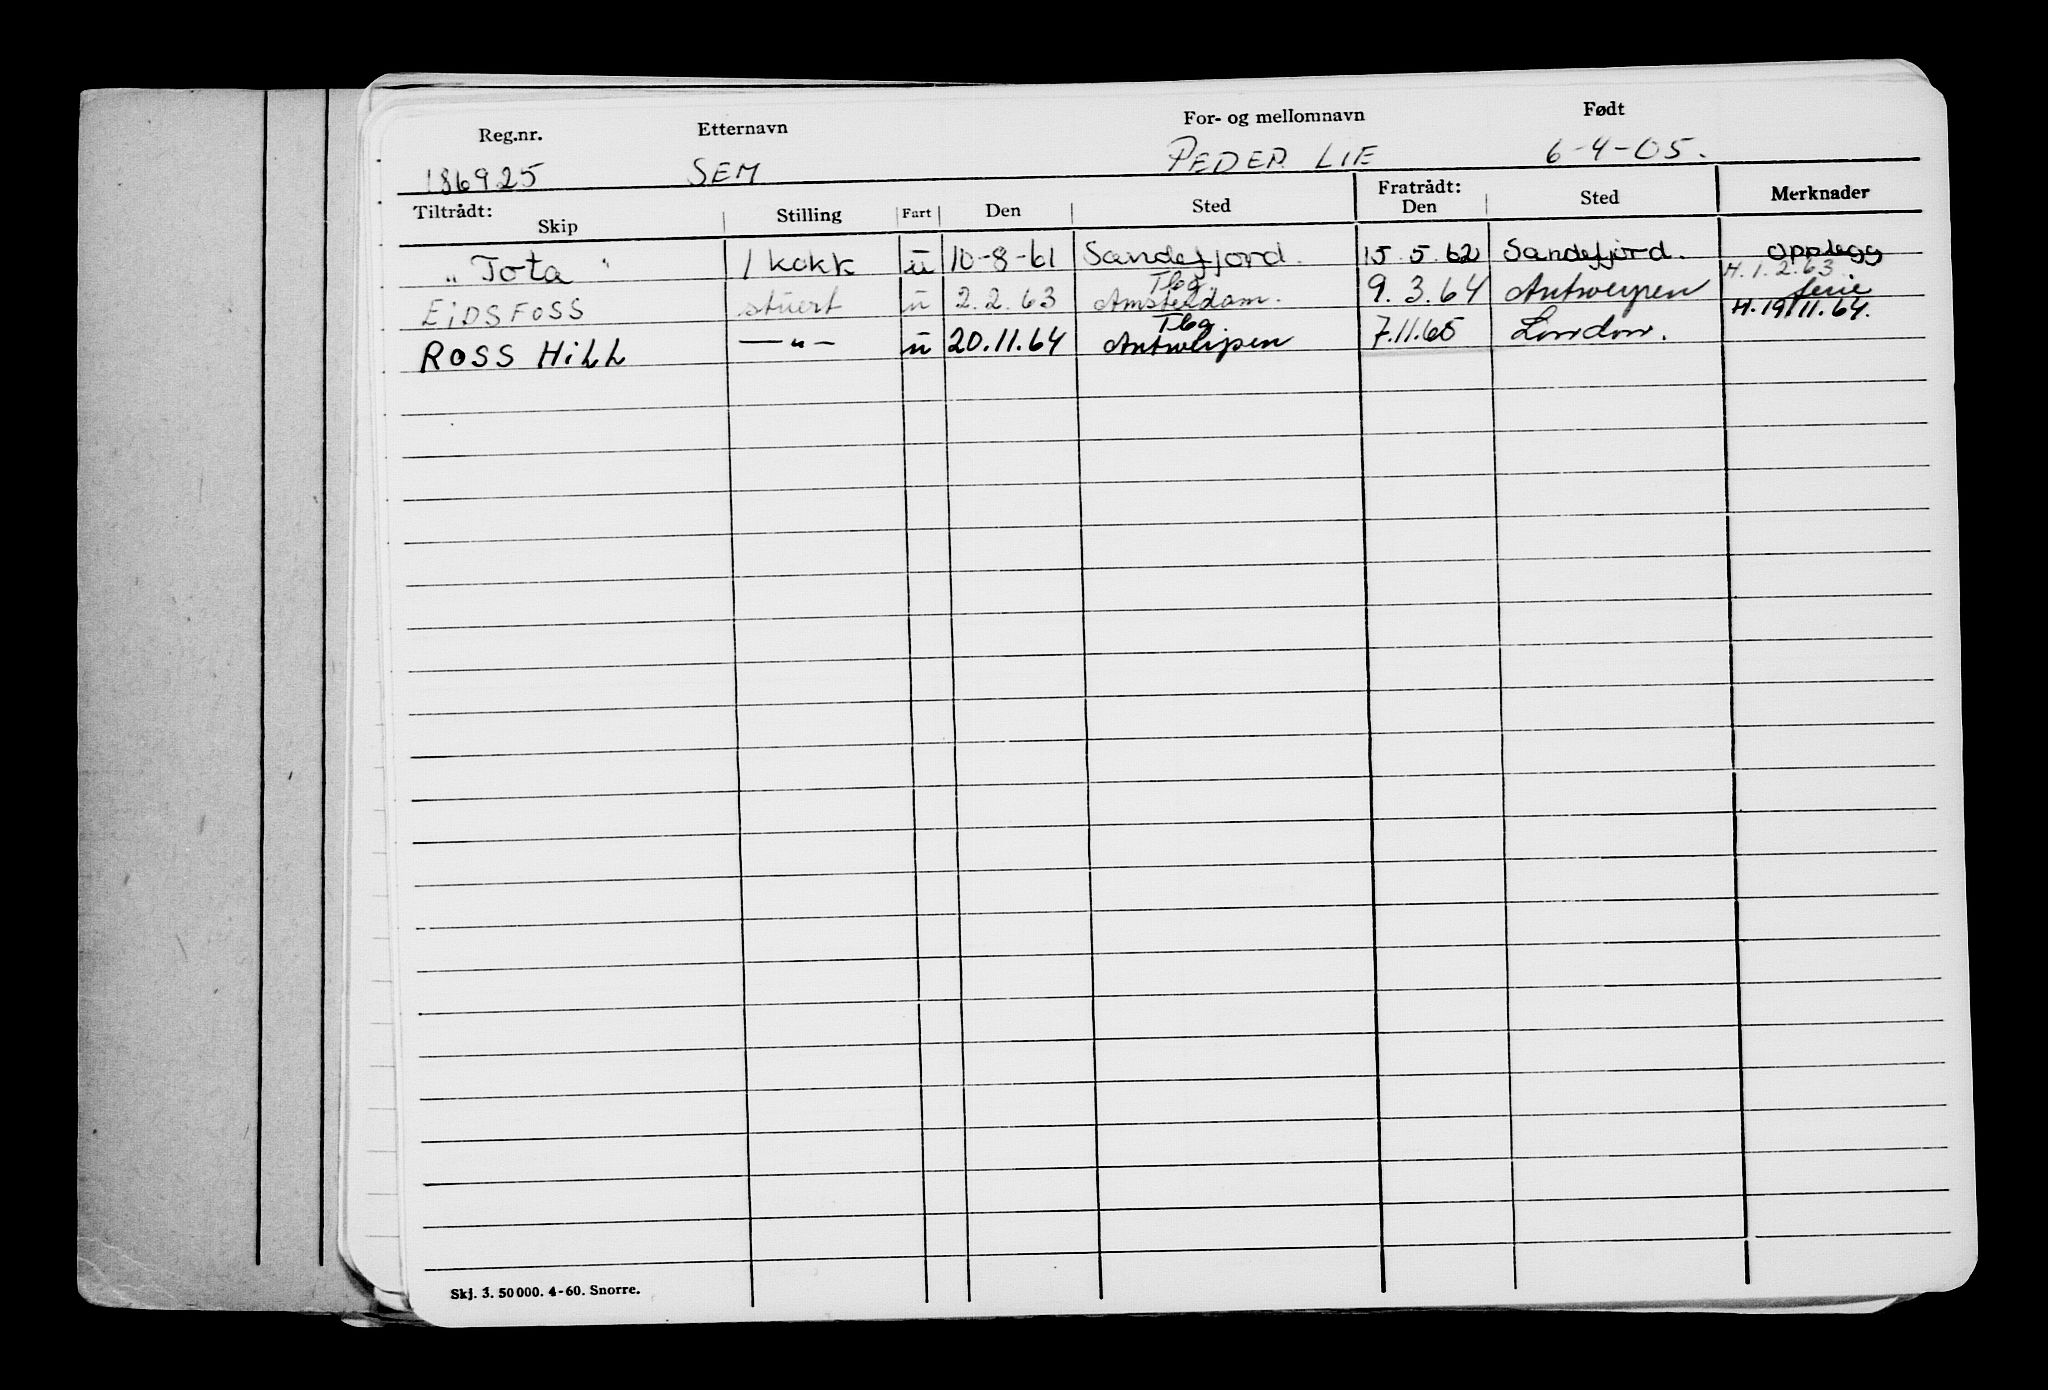 Reg.nr. Etternavn For- og mellomnavn Født
186925 SEM PEDER LIE 6-4-05.
Tiltrådt: Fratrådt:
Skip Stilling Fart Den Sted Den Sted Merknader
„ Tota " 1 kokk u 10-8-61 Sandefjord. 15.5.62 Sandefjord. opplegg
H. 1.2.63
EIDSFOSS stuert u 2.2.63 Tbg Amsterdam. 9.3.64 Antwerpen ferie
H. 19/11.64.
ROSS HILL —„— u 20.11.64 Tbg Antwerpen 7.11.65 London.
Skj. 3. 50 000. 4-60. Snorre.